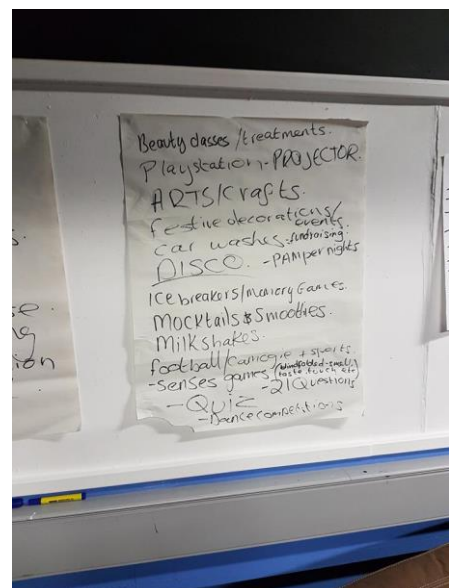 Beauty classes/treatments.
Playstation-PROJECTOR.
ARTS/Crafts.
festive decorations/
events.
car washes-fundraising.
DISCO. -PAMper nights
Icebreakers/memory Games.
Mocktails & Smoothies.
Milkshakes.
football/carnegie + sports.
-senses games (blindfolded-smell,
taste, touch etc)
-21 Questions
-QUIZ
-Dance competitions
se.
g
ion